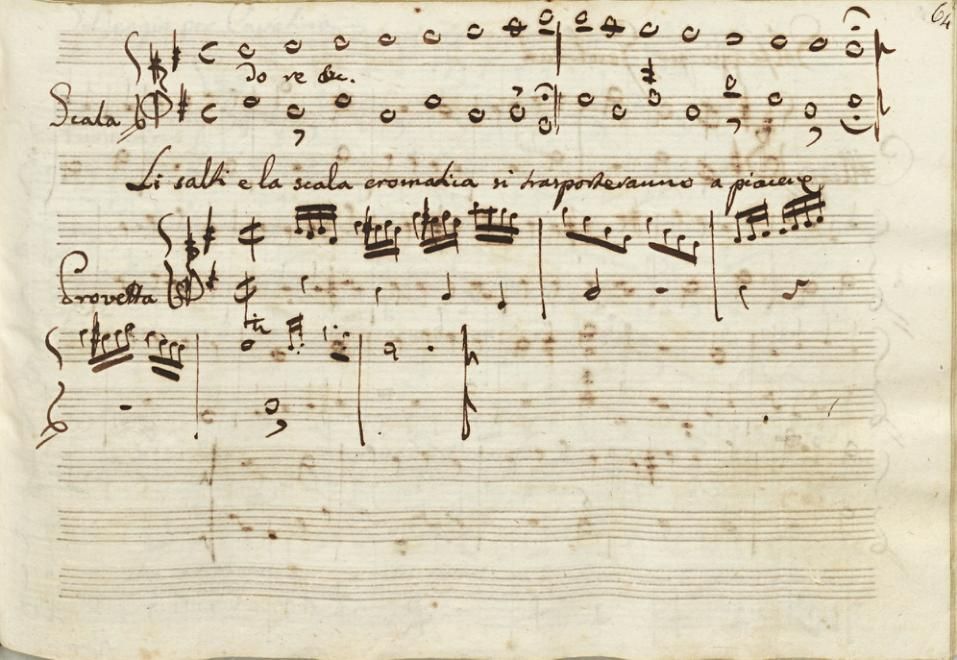 64
do re &c.
Scala
Li salti e la scala cromadica si trasporteranno a piacere
Provetta
tr